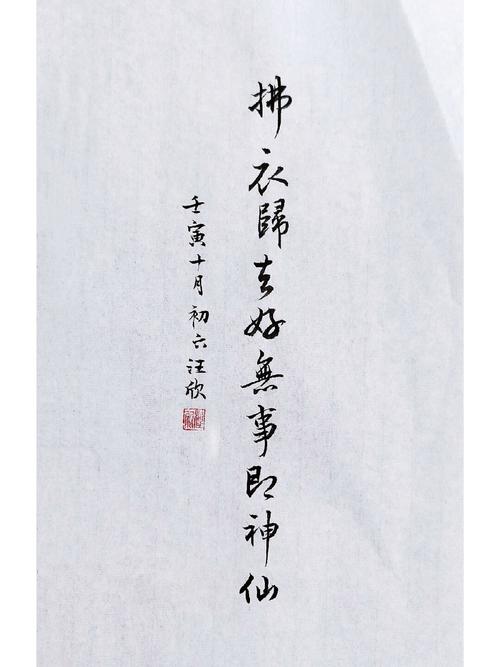 拂衣歸去好無事即神仙
壬寅十月初六汪欣